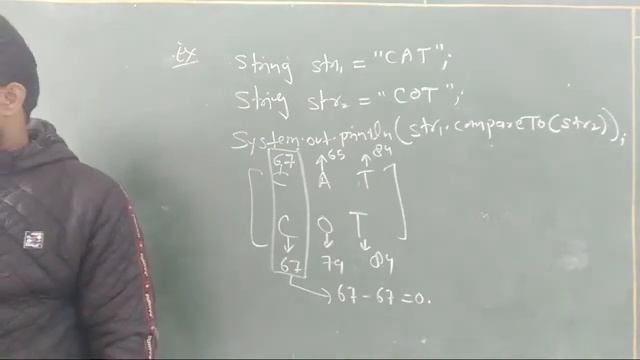 Ex String str1 = "CAT";
String str2 = "COT";
System.out.println(str1.compareTo(str2));
67 65 84
C A T
C O T
67 79 84
67-67=0.